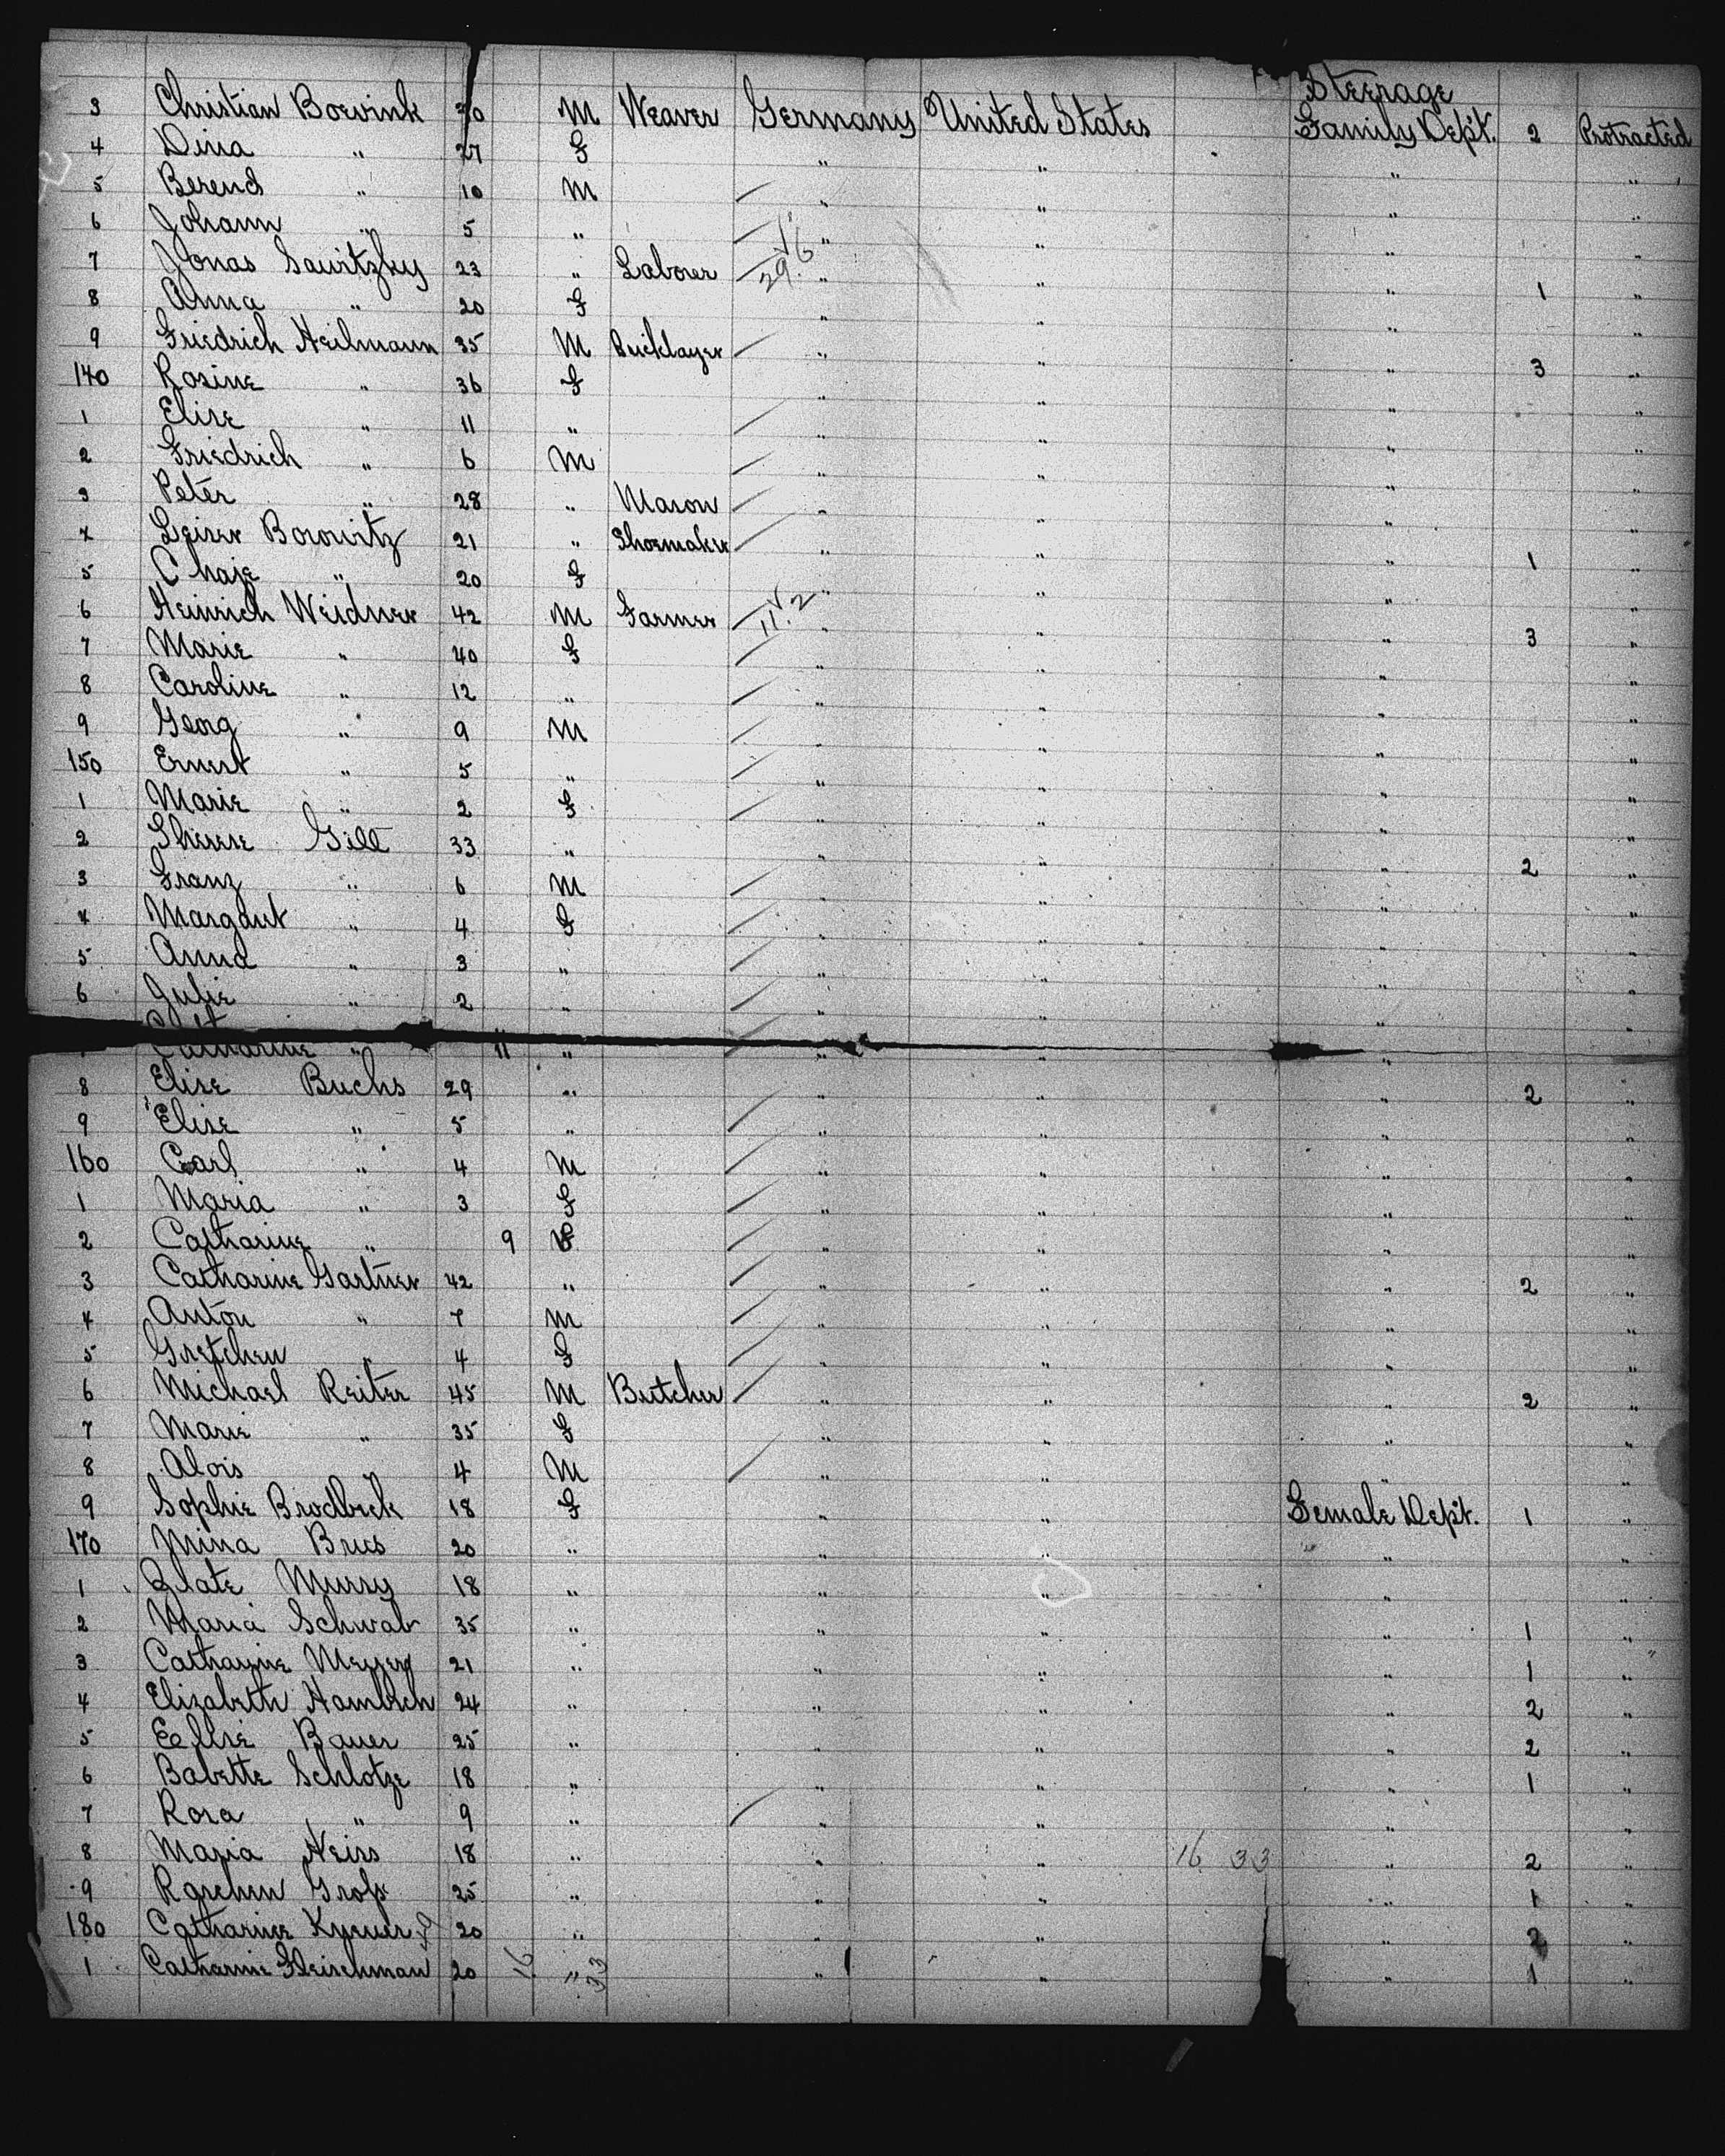 Steerage
3 Christian Boevink 30 M Weaver Germany United States Family Dep't. 2 Protracted
4 Dina " 27 F " " " "
5 Berend " 10 M " " " "
6 Johann " 5 " " " " "
7 Jonas Sawitzky 23 " Laborer " " " 1 "
8 Anna " 20 F " " " "
9 Friedrich Heilmann 35 M Bricklayer " " " 3 "
140 Rosine " 36 F " " " "
1 Elise " 11 " " " " "
2 Friedrich " 6 M " " " "
3 Peter " 28 " Mason " " " "
4 Leiser Borowitz 21 " Shoemaker " " " 1 "
5 Chaje " 20 F " " " "
6 Heinrich Weidner 42 M Farmer " " " 3 "
7 Marie " 40 F " " " "
8 Caroline " 12 " " " " "
9 Georg " 9 M " " " "
150 Ernest " 5 " " " " "
1 Marie " 2 F " " " "
2 Gill 33 " " " " 2 "
3 Franz " 6 M " " " "
4 Margaret " 4 F " " " "
5 Anna " 3 " " " " "
6 Julie " 2 " " " " "
Catharine " 11 " " " "
8 Elise Buchs 29 " " " " 2 "
9 Elise " 5 " " " " "
160 Carl " 4 M " " " "
1 Maria " 3 F " " " "
2 Catharine " 9 " " " "
3 Catharine Gartner 42 " " " " 2 "
4 Anton " 7 M " " " "
5 Gretchen " 4 F " " " "
6 Michael Reiter 45 M Butcher " " " 2 "
7 Marie " 35 F " " " "
8 Alois " 4 M " " " "
9 Sophie Brodbeck 18 F " " Female Dept. 1 "
170 Mina Brus 20 " " " " "
1 Zlate Murry 18 " " " " "
2 Maria Schwab 35 " " " " 1 "
3 Catharine Meyer 21 " " " " 1 "
4 Elizabeth 24 " " " " 2 "
5 Bauer 25 " " " " 2 "
6 Babette Schlotze 18 " " " " 1 "
7 Rosa " 9 " " " " "
8 Maria Heiss 18 " " " 16 33 " 2 "
9 Roschen Groß 25 " " " " 1 "
180 Catharine 20 " " " " 2 "
1 Catharine Fleischman 20 16 " 33 " " " 1 "